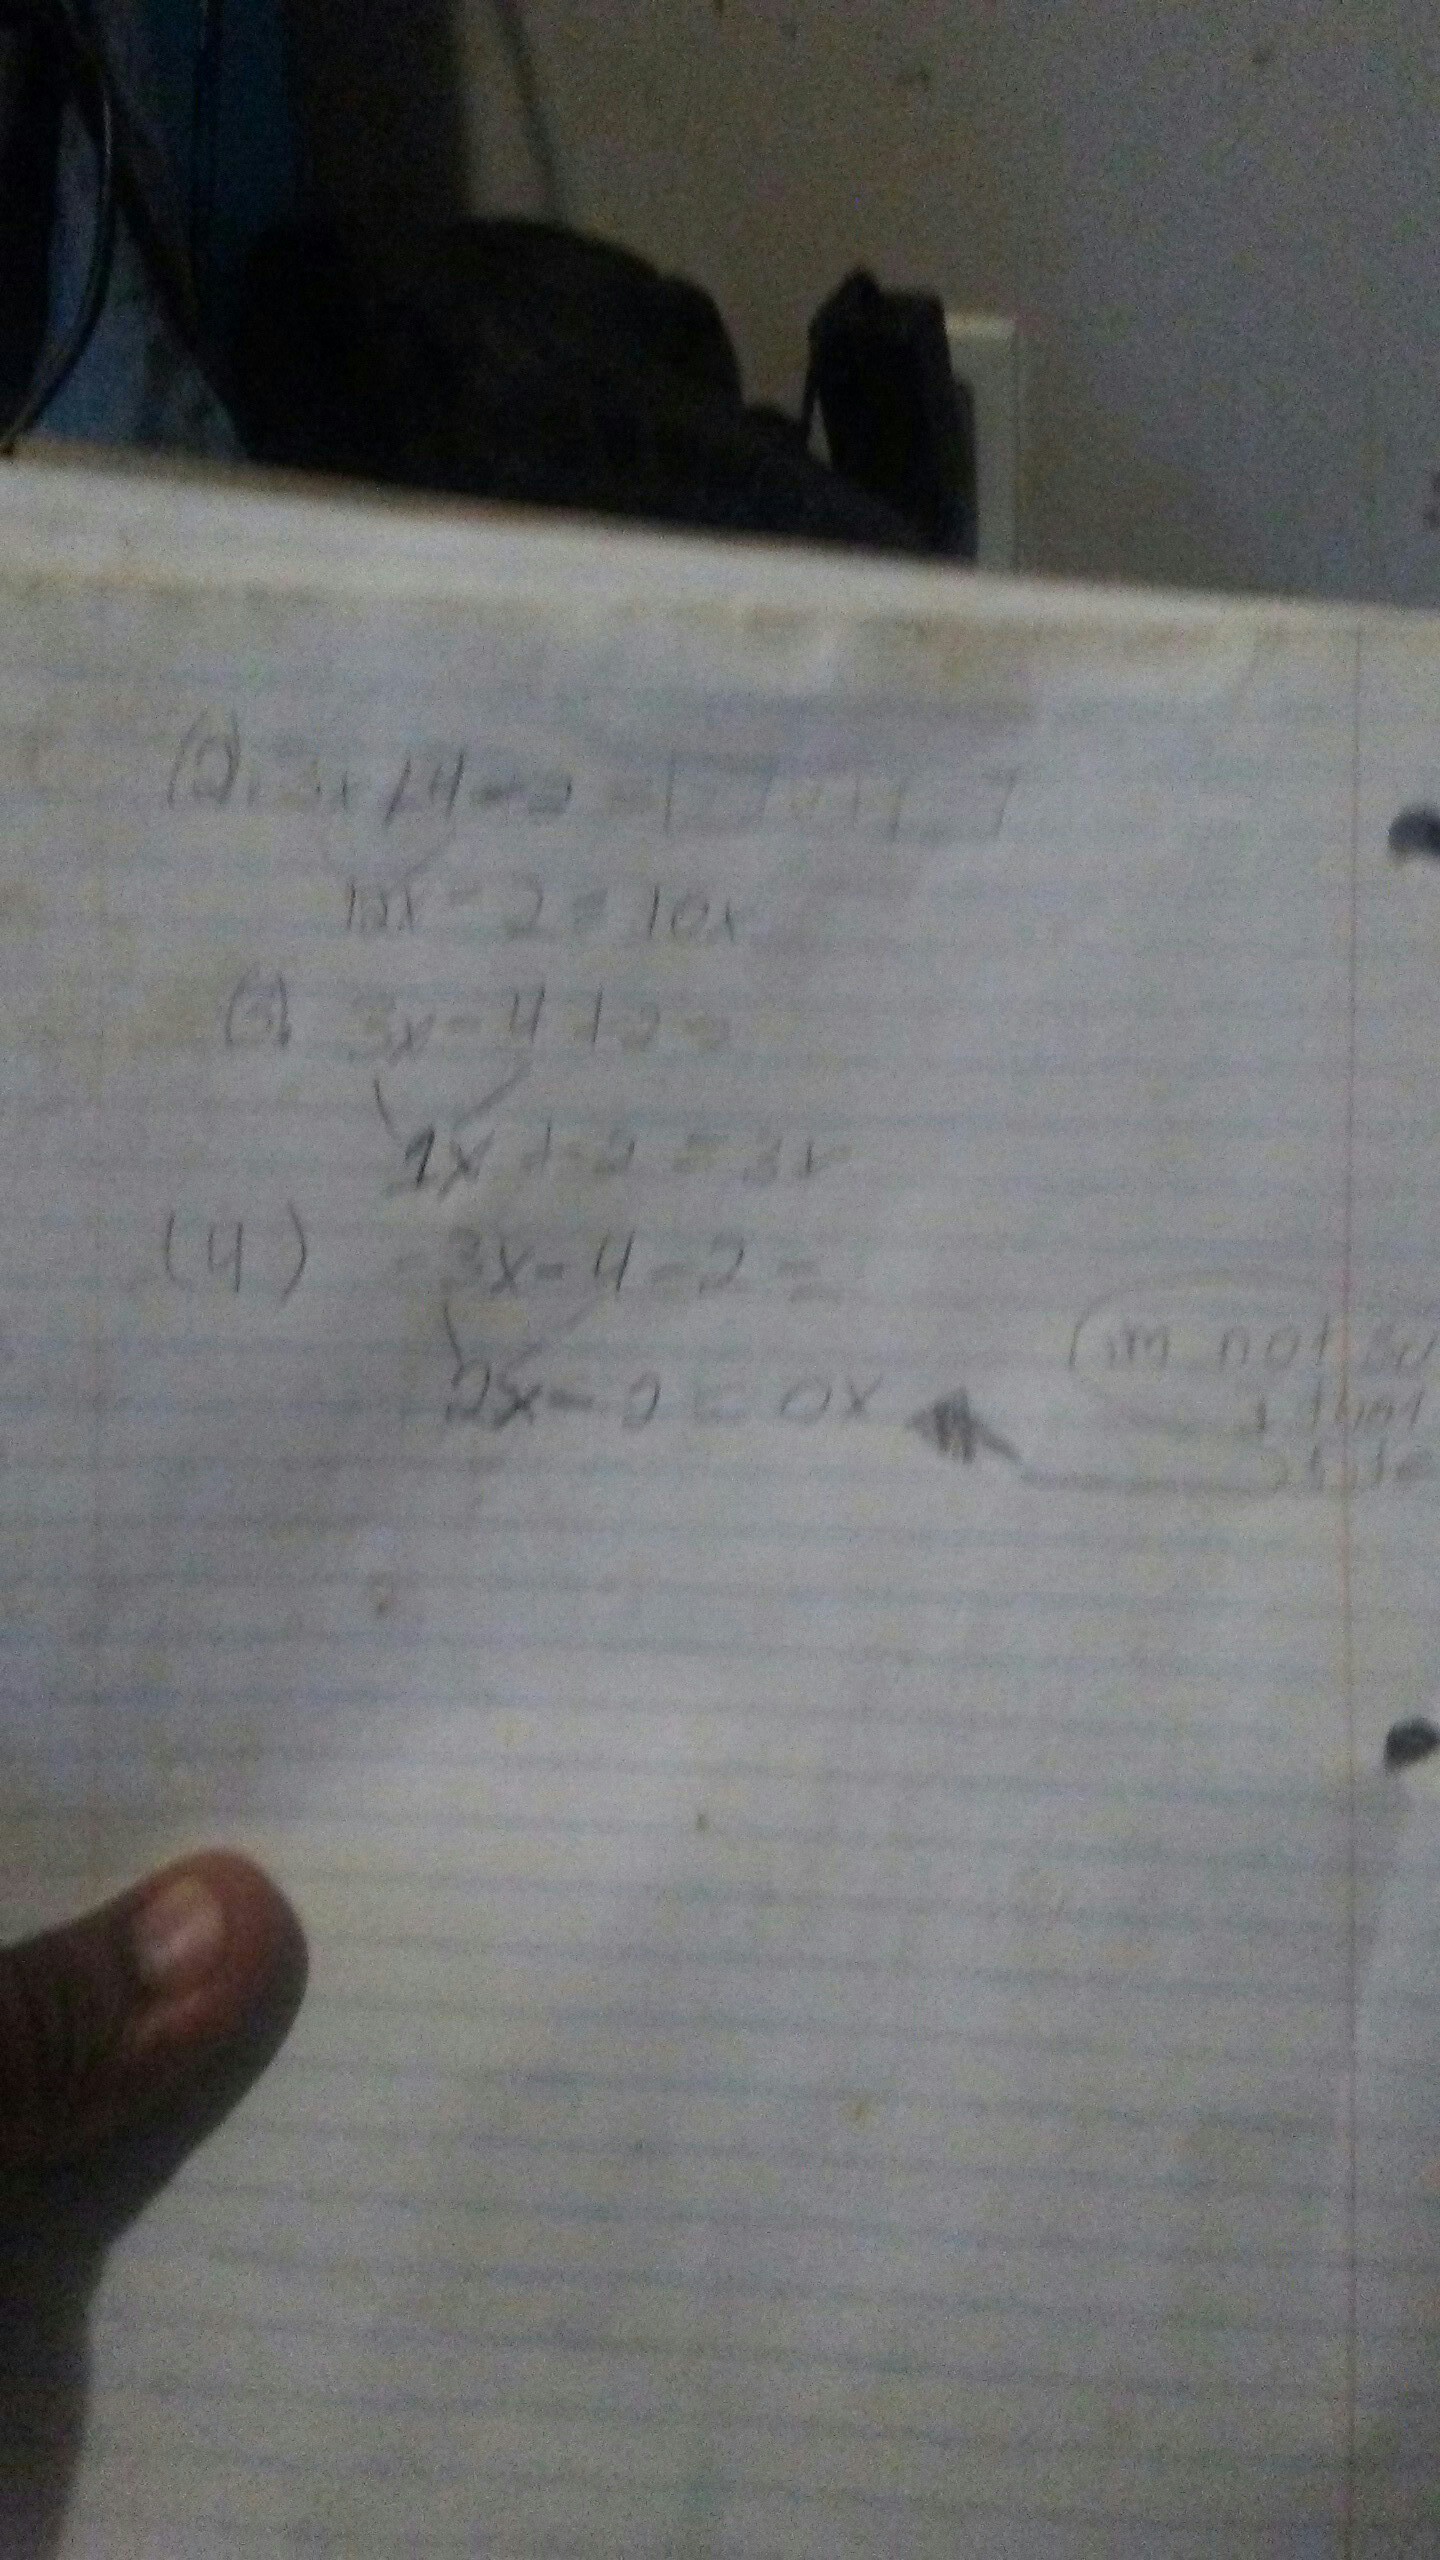 (2). 3x + 4 - 2 =
12x - 2 = 10x
(3) 3x - 4 + 2 =
1x + 2 = 3x
(4) - 3x - 4 - 2 =
2x - 2 = 0x
im not